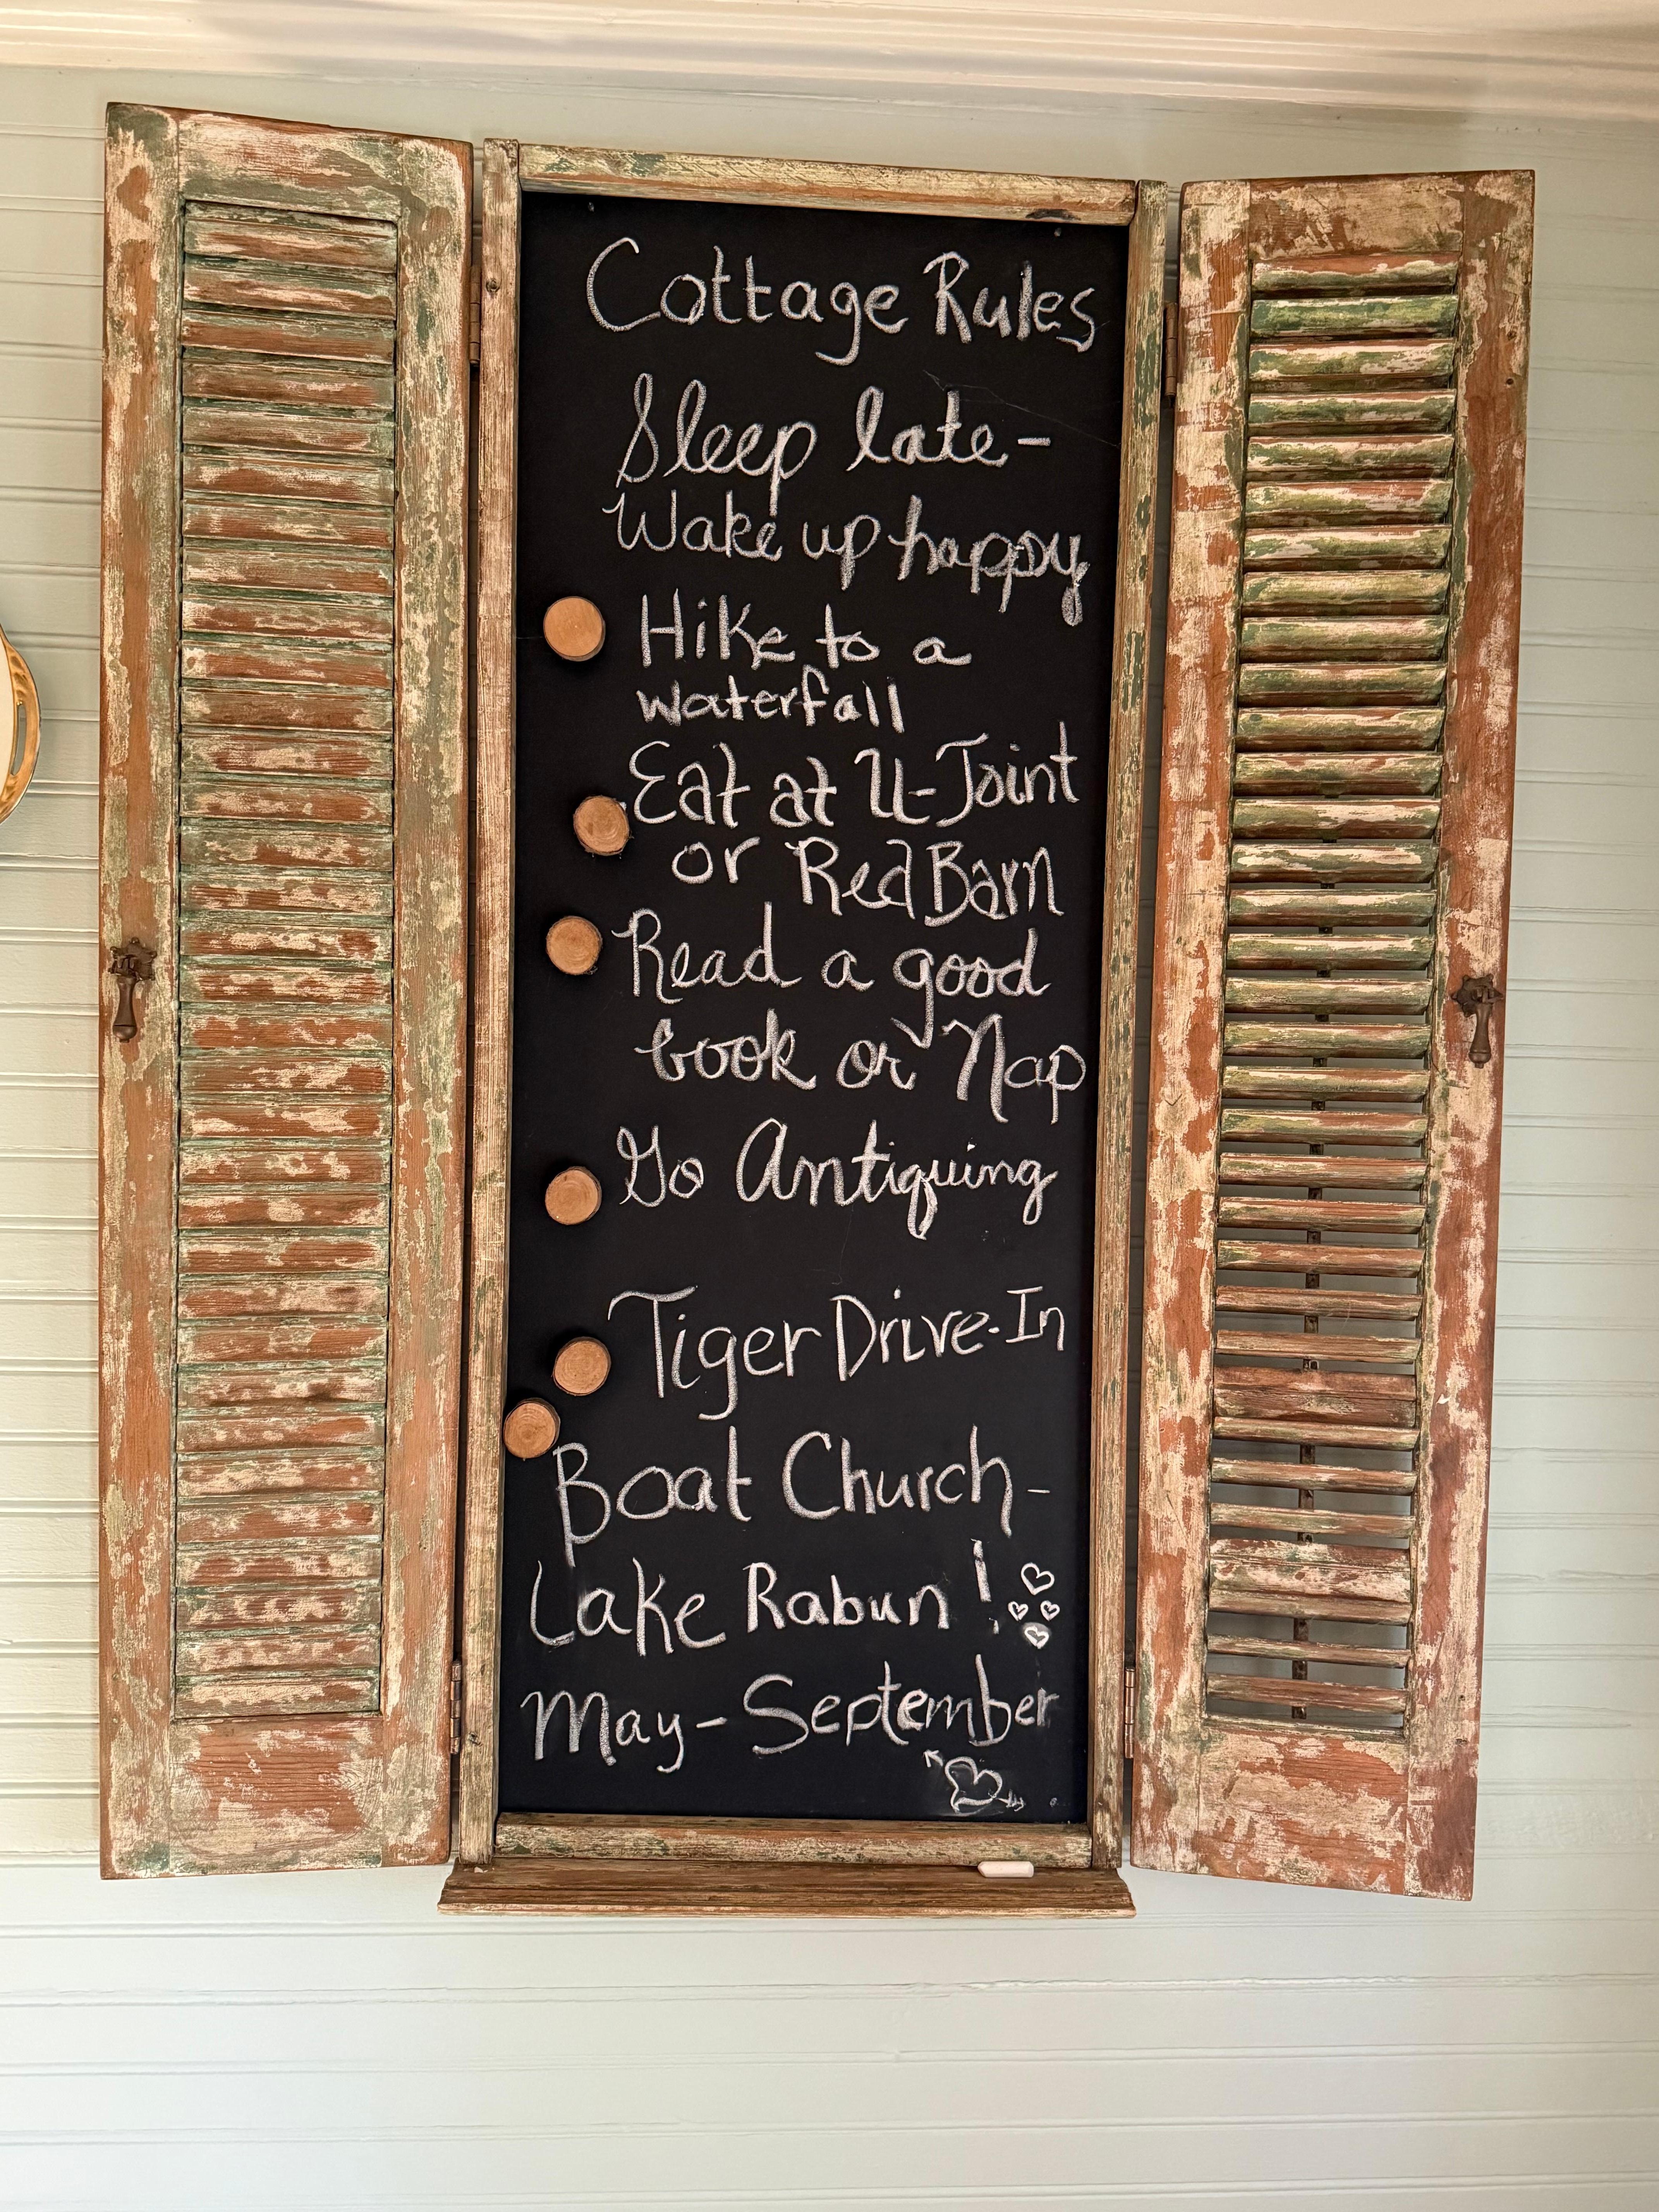 Cottage Rules
Sleep late-
Wake up happy
Hike to a
waterfall
Eat at U-Joint
or Red Barn
Read a good
book or Nap
Go Antiquing
Tiger Drive-In
Boat Church-
Lake Rabun!
May-September